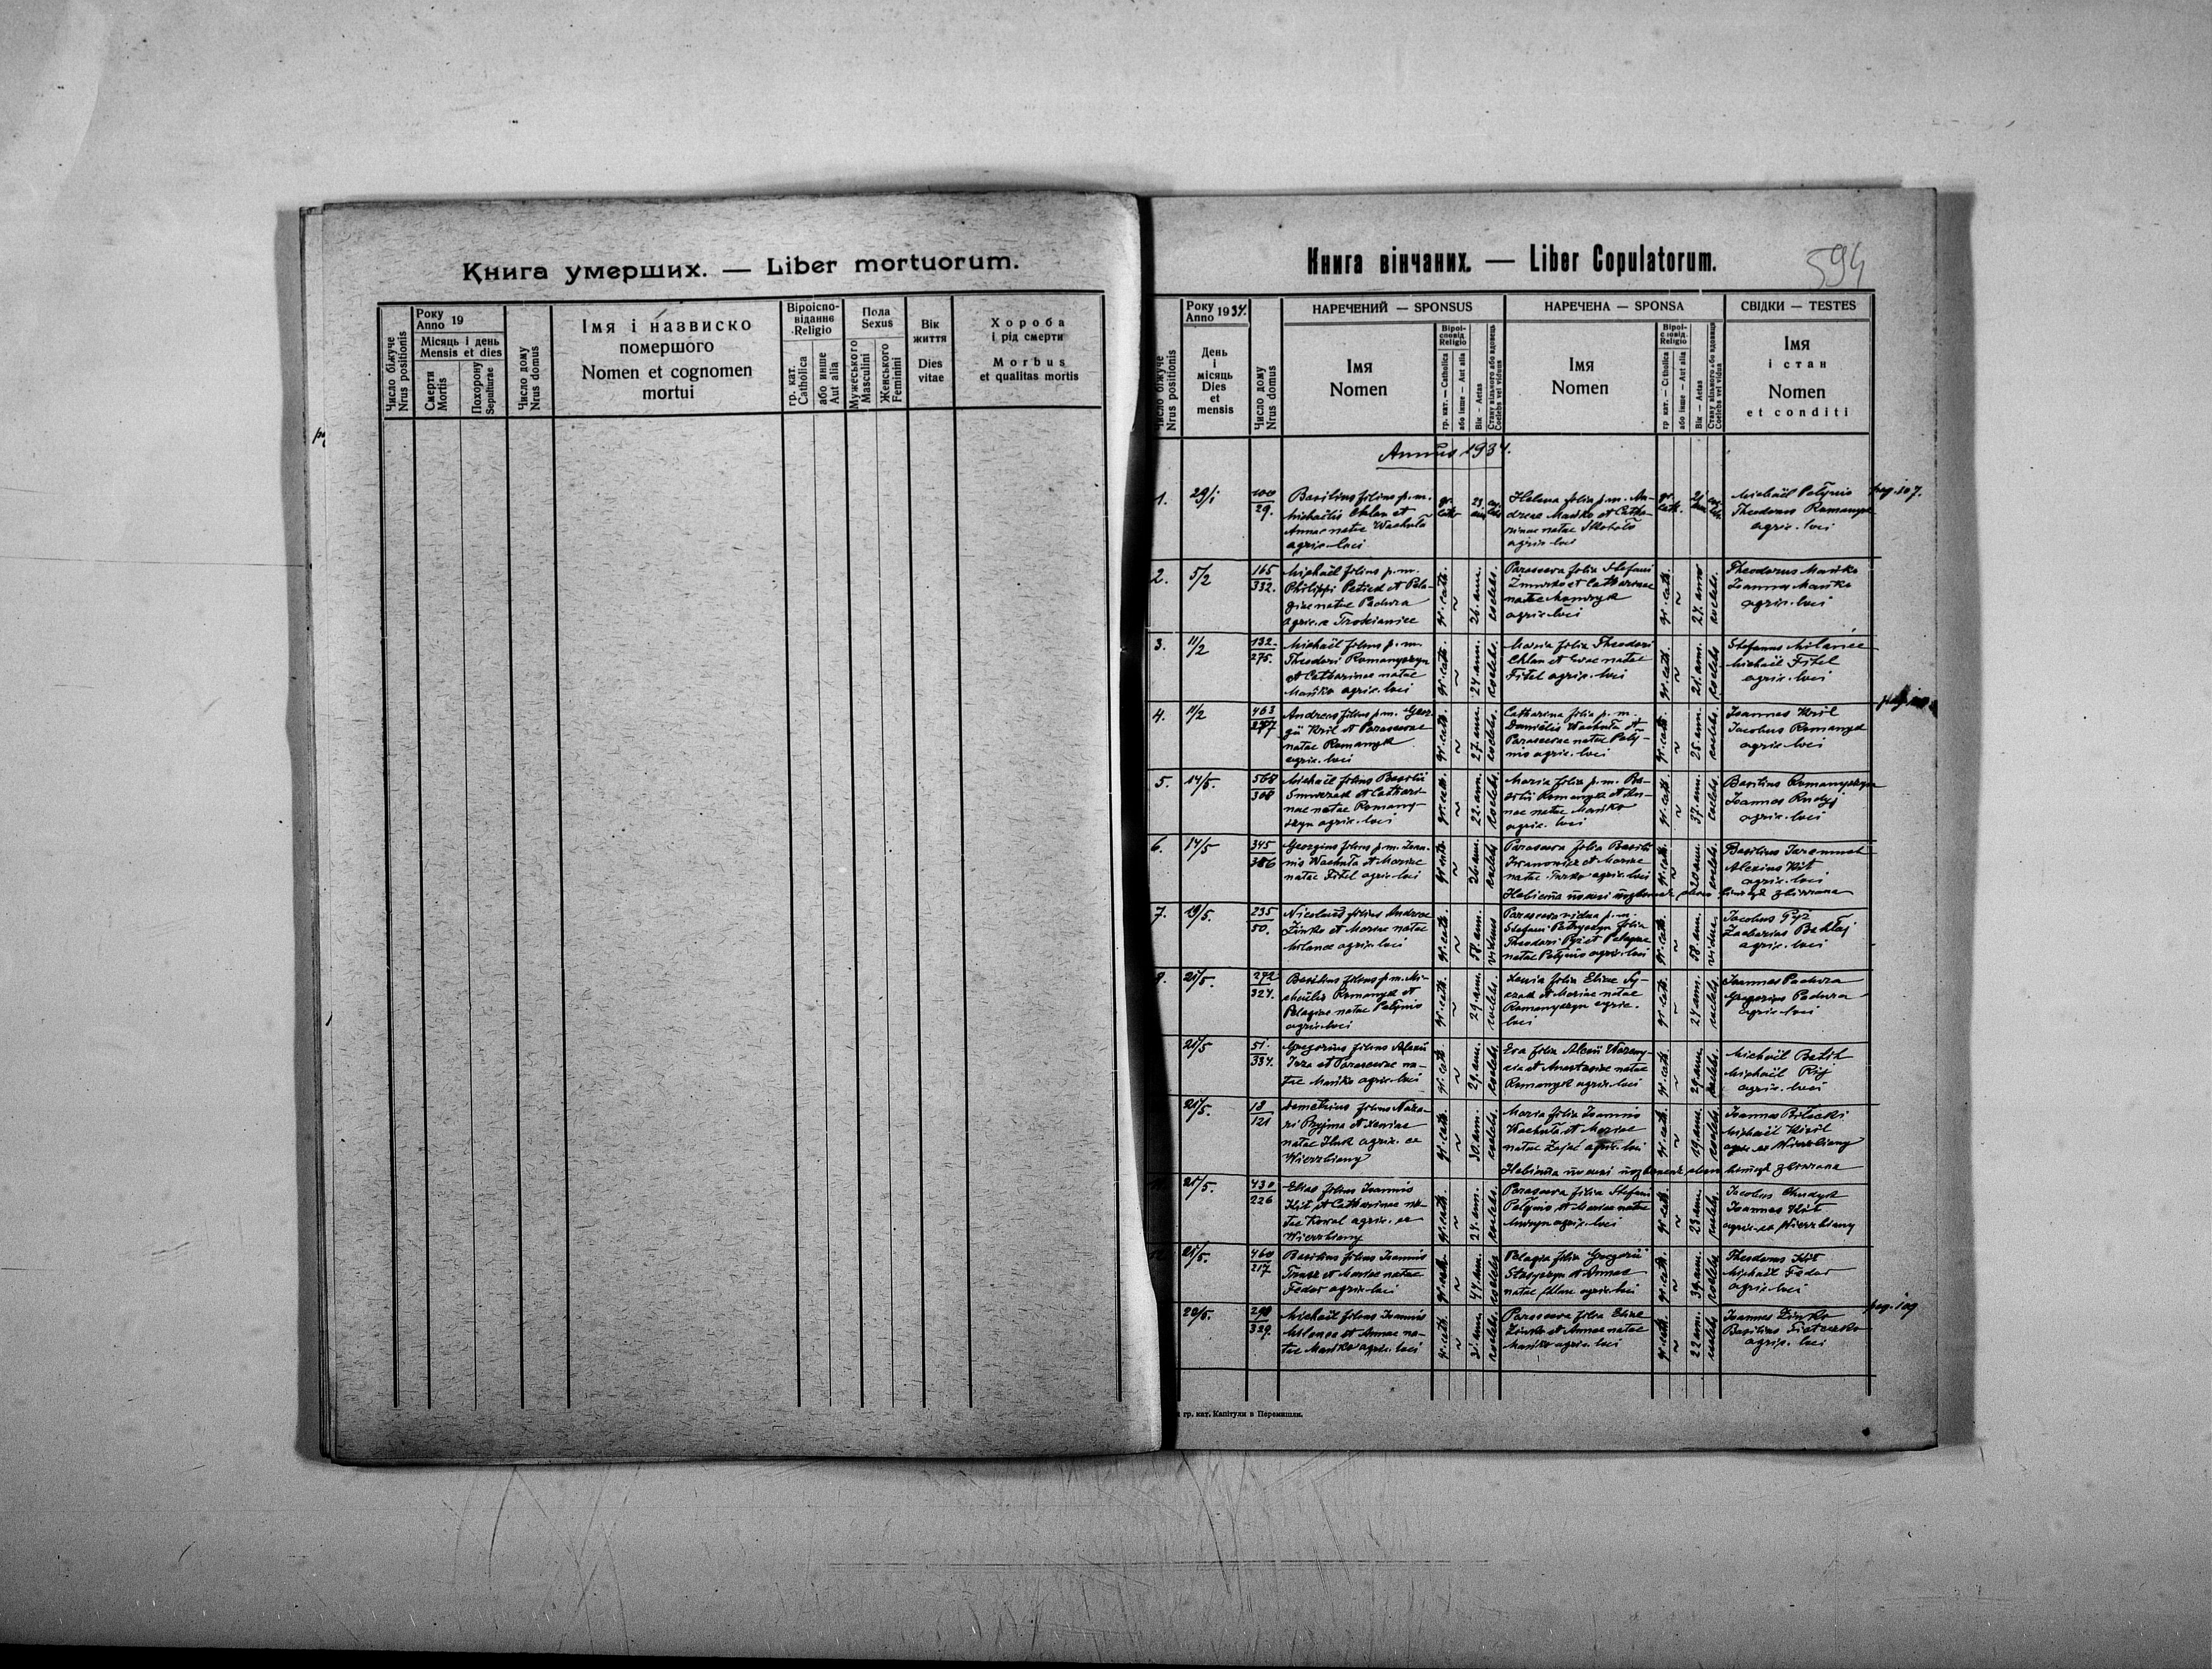 Книга умерших. — Liber mortuorum.
Число біжуче
Nrus positionis
Року
Anno 19
Місяць і день
Mensis et dies
Смерти
Mortis
Похорону
Sepulturae
Число дому
Nrus domus
Імя і назвиско
помершого
Nomen et cognomen
mortui
Віроіспо-
віданнє
Religio
гр. кат.
Catholica
або инше
Aut alia
Пола
Sexus
Мужеського
Masculini
Женського
Feminini
Вік
життя
Dies
vitae
Хороба
і рід смерти
Morbus
et qualitas mortis
Книга вінчаних. — Liber Copulatorum.
594
Число біжуче
Nrus positionis
Року
Anno 1934.
День
і
місяць
Dies
et
mensis
Число дому
Nrus domus
НАРЕЧЕНИЙ — SPONSUS
Імя
Nomen
Віроі-
сповід.
Religio
гр. кат. — Catholica
або інше — Aut alia
Вік — Aetas
Стану вільного або вдовець
Coelebs vel viduus
НАРЕЧЕНА — SPONSA
Імя
Nomen
Віроі-
сповід.
Religio
гр. кат. — Catholica
або інше — Aut alia
Вік — Aetas
Стану вільного або вдовиця
Coelebs vel vidua
СВІДКИ — TESTES
Імя
і стан
Nomen
et conditi
Annus 1934.
1.
29/1
100
29.
Basilius filius p.m.
Michaëlis Chlan et
Annae natae Wachuła
agric. loci
gr. cath.
Helena filia p.m. An-
dreae Mańko et Catha-
rinae natae
agric. loci
gr. cath.
Michaël Patynio
Theodorus Romanyk
agric. loci
pag. 107.
2.
5/2
165
332.
Michaël filius p.m.
Philippi Petied et Pela-
giae natae Padura
agric. e Trościaniec
gr. cath.
26. ann.
coelebs.
Parasceva filia Stefani
Żmurko et Catharinae
natae
agric. loci
gr. cath.
24. ann
coelebs.
Theodorus Mańko
Joannes Mańko
agric. loci
3.
11/2
132.
275.
Michaël filius p.m.
Theodori Romanyszyn
et Catharinae natae
Mańko agric. loci
gr. cath.
24. ann.
coelebs.
Maria filia Theodori
Chlan et Evae natae
Fitel agric. loci
gr. cath.
21. ann.
coelebs
Stefanus Milaniec
Michaël Fitel
agric. loci
4.
11/2
463
Andreas filius p.m. Geor-
gii Kril et Parascevae
natae Romanyk
agric. loci
gr. cath.
27. ann.
coelebs.
Catharina filia p.m.
Danielis Wachuła et
Parascevae natae Paty-
nio agric. loci
gr. cath.
25. ann.
coelebs.
Joannes Kril
Jacobus Romanyk
agric. loci
5.
14/5.
568
308
Michaël filius Basilii
et Cathari-
nae natae Romany-
szyn agric. loci
gr. cath.
22. ann.
coelebs.
Maria filia p.m. Ba-
silii Romanyk et An-
nae natae Mańko
agric. loci
gr. cath.
37. ann.
coelebs.
Basilius Romanyszyn
Joannes Rudyj
agric. loci
6.
14/5
345
386
Georgius filius p.m. Joan-
nis Wachuła et Mariae
natae Fitel agric. loci
gr. cath.
26. ann.
coelebs
Parasceva filia Basilii
Iwanowicz et Mariae
natae agric. loci
gr. cath.
20 ann.
coelebs.
Basilius
Alexius Kit
agric. loci
7.
19/5.
235
50.
Nicolaus filius Andreae
Zinko et Mariae natae
agric. loci
gr. cath.
58. ann.
viduus
Parasceva vidua p.m.
Stefani Petryszyn filia
Theodori Pyż et Pelagiae
natae Patynio agric. loci
gr. cath.
58. ann.
vidua.
Jacobus Pyż
Zacharias Bakłaj
agric. loci
8.
21/5.
272
324.
Basilius filius p.m. Mi-
chaëlis Romanyk et
Pelagiae natae Patynio
agric. loci
gr. cath.
29. ann.
coelebs.
Xenia filia Eliae
et Mariae natae
Romanyszyn agric.
loci
gr. cath.
24 ann.
coelebs.
Joannes Padura
Gregorius Padura
agric. loci
21/5
51.
334.
Gregorius filius Alexii
et Parascevae na-
tae Mańko agric. loci
gr. cath.
29. ann.
coelebs.
Eva filia Alexii
et Anastasiae natae
Romanyk agric. loci
gr. cath.
29. ann.
coelebs.
Michaël
Michaël
agric. loci
21/5.
18
121
Demetrius filius Naza-
rii et Xeniae
natae agric. ex
Wierzbiany
gr. cath.
30. ann.
coelebs.
Maria filia Joannis
Wachuła et Mariae
natae Zając agric. loci
gr. cath.
19. ann.
coelebs.
Joannes Biłocki
Michaël Kizil
agric. ex Wierzbiany
21/5.
430
226
Elias filius Joannis
Kit et Catharinae na-
tae Kowal agric. ex
Wierzbiany
gr. cath.
24. ann.
coelebs.
Parasceva filia Stefani
Patynio et Mariae natae
agric. loci
gr. cath.
23. ann.
coelebs.
Jacobus Chudyk
Joannes Kit
agric. ex Wierzbiany
21/5.
460
217
Basilius filius Joannis
et Mariae natae
Fedor agric. loci
gr. cath.
44 ann.
coelebs
Pelagia filia Gregorii
Stasyszyn et Annae
natae Chlan agric. loci
gr. cath.
39. ann.
coelebs
Theodorus Kit
Michaël Fedor
agric. loci
28/5.
298
329.
Michaël filius Joannis
et Annae na-
tae Mańko agric. loci
gr. cath.
31 ann.
coelebs.
Parasceva filia Eliae
Zinko et Annae natae
Mańko agric. loci
gr. cath.
22 ann.
coelebs
Joannes Zinko
Basilius
agric. loci
pag. 109
гр. кат. Капітули в Перемишли.